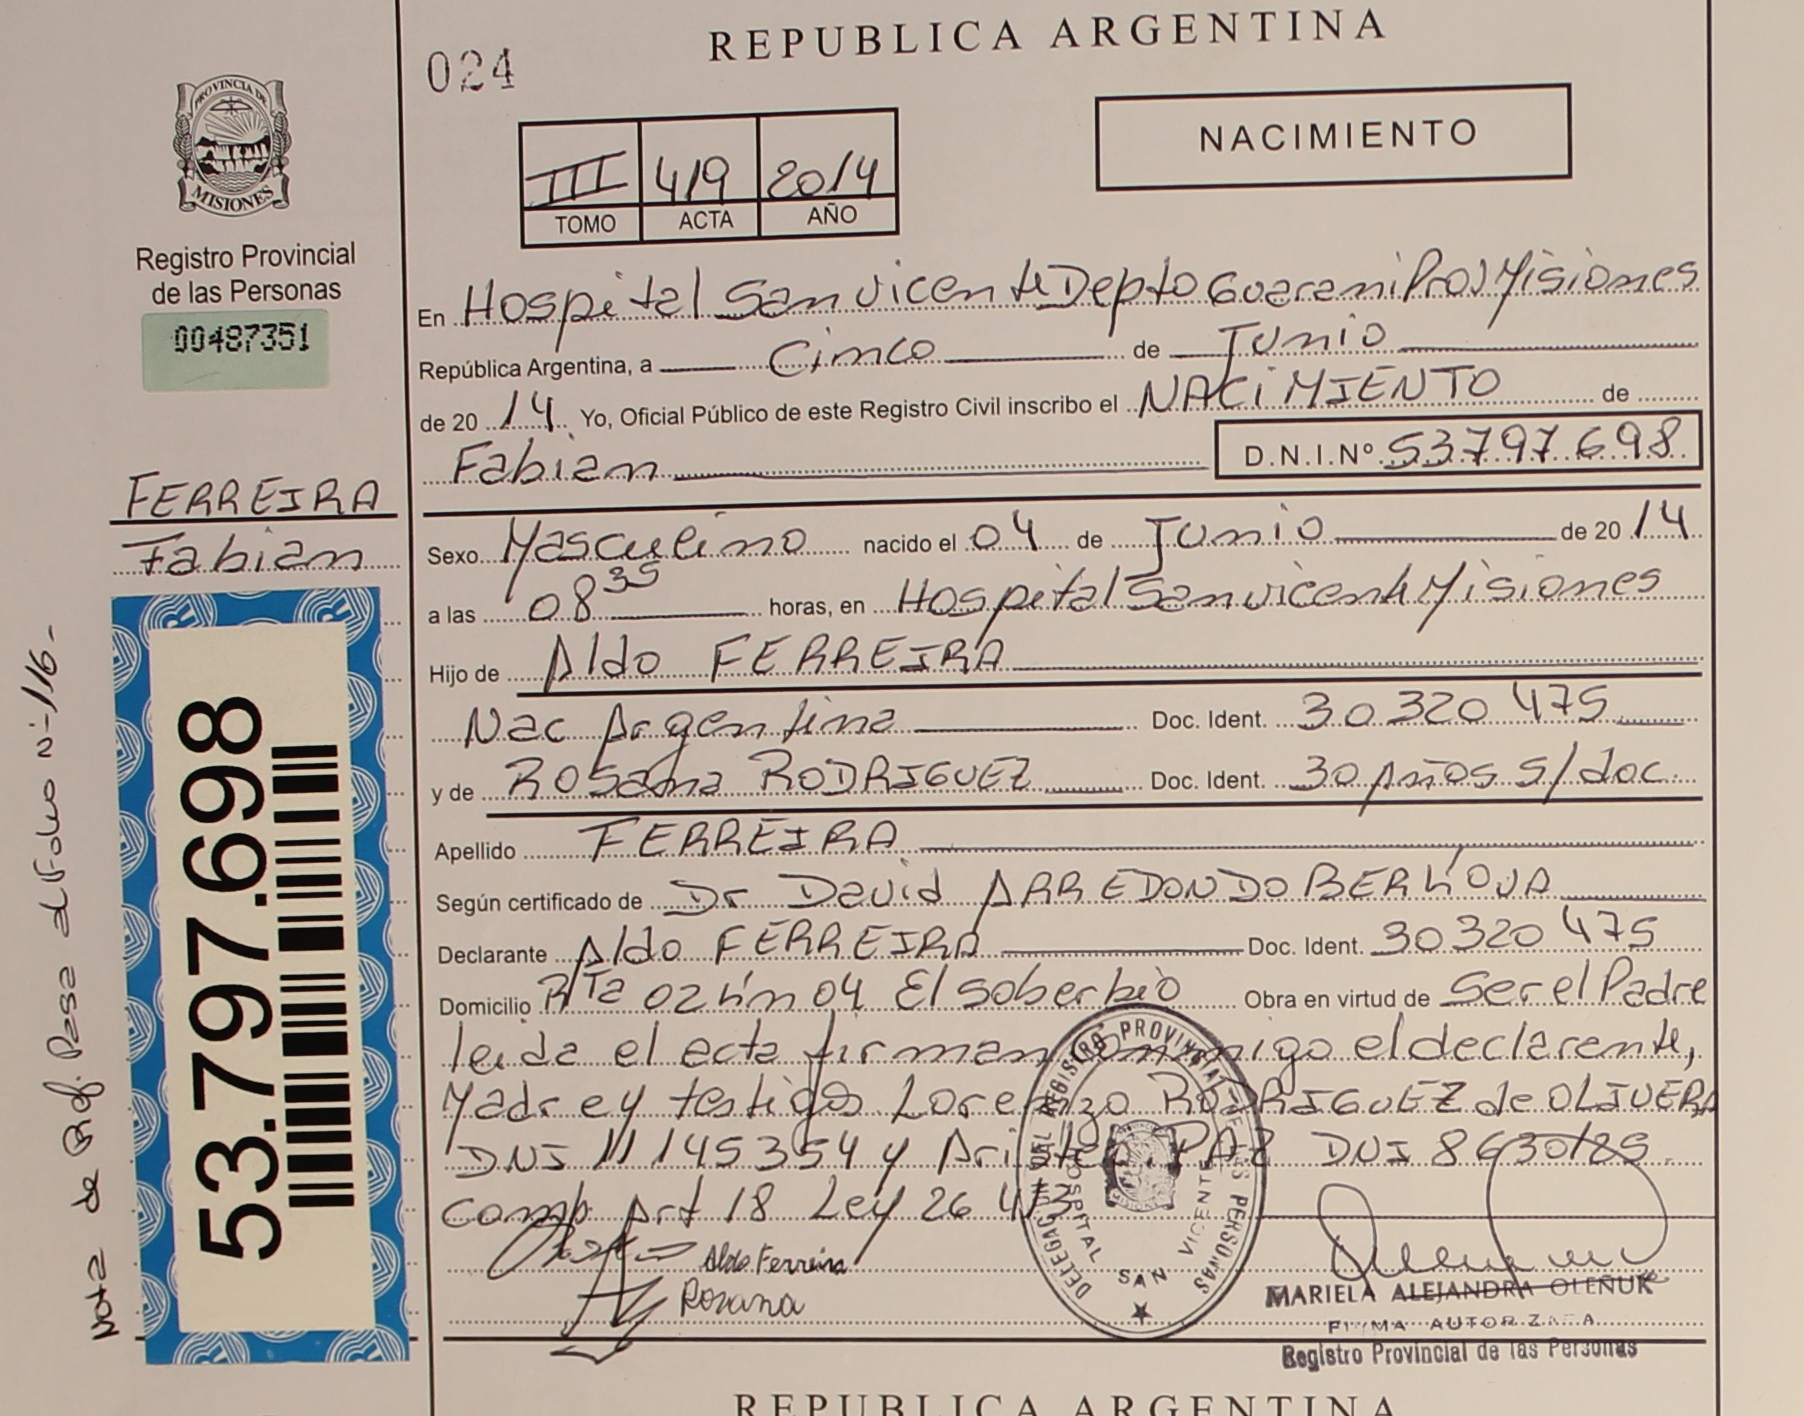 REPUBLICA ARGENTINA
024
NACIMIENTO
III 419 2014
TOMO ACTA AÑO
PROVINCIA DE
MISIONES
Registro Provincial
de las Personas
00487351
FERREIRA
Fabian
53.797.698
Nota de Ref. Pasa al Folio Nº 116-
En Hospital San Vicente Depto Guarani Prov Misiones
República Argentina, a Cinco de Junio
de 20 14 Yo, Oficial Público de este Registro Civil inscribo el NACIMIENTO de
Fabian D.N.I.Nº 53797698
Sexo Masculino nacido el 04 de Junio de 20 14
a las 08 35 horas, en Hospital San vicente Misiones
Hijo de Aldo FERREIRA
Nac Argentina Doc. Ident. 30 320 475
y de Rosana RODRIGUEZ Doc. Ident. 30 Años s/doc
Apellido FERREIRA
Según certificado de Dr David ARREDONDO
Declarante Aldo FERREIRA Doc. Ident. 30 320 475
Domicilio RTa 02 km 04 El soberbio Obra en virtud de Ser el Padre
leida el acta firman conmigo el declarante,
Madre y testigos Lorenzo RODRIGUEZ de OLIVERA
DNI 11 145354 y PAZ DNI 8630185
comp. Art 18 Ley 26 413
Aldo Ferreira
Rosana
DELEGACION DEL REGISTRO PROVINCIAL DE LAS PERSONAS
HOSPITAL SAN VICENTE
MARIELA ALEJANDRA OLEÑUK
FIRMA AUTORIZADA
Registro Provincial de las Personas
REPUBLICA ARGENTINA